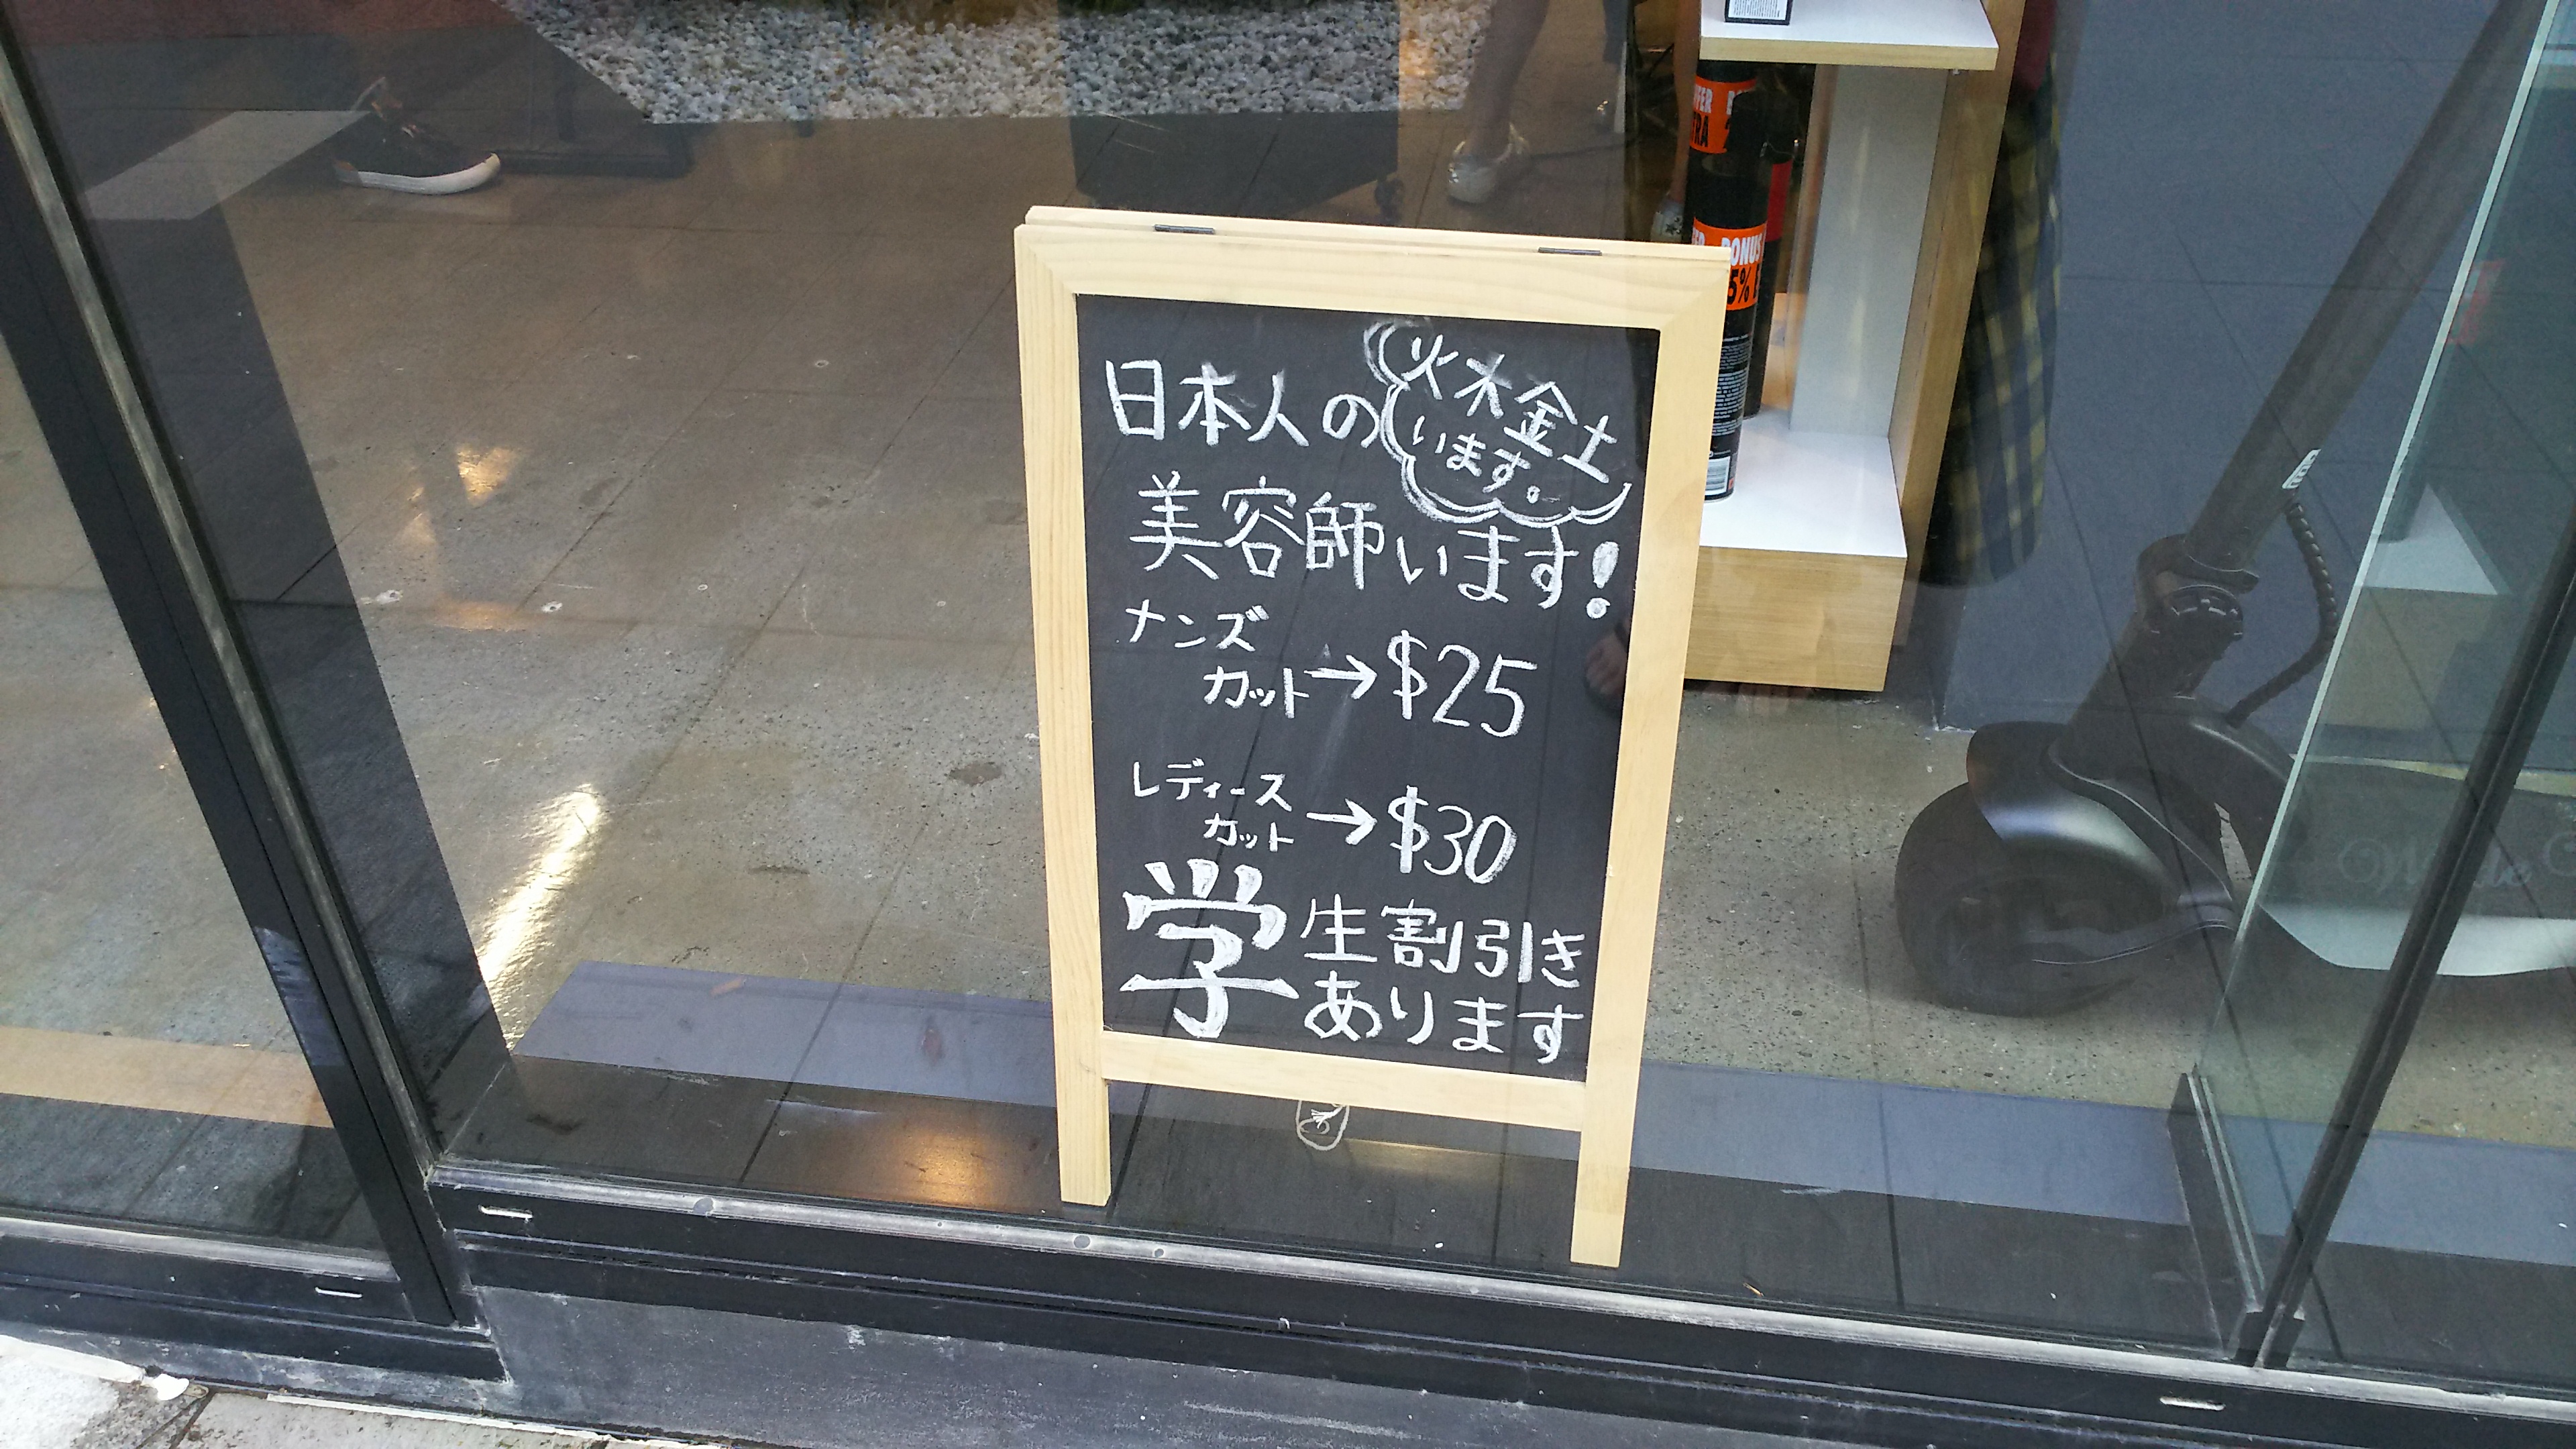 日本人の
火木金土
います。
美容師います!
メンズ
カット→$25
レディース
カット→$30
学生割引き
あります
BONUS